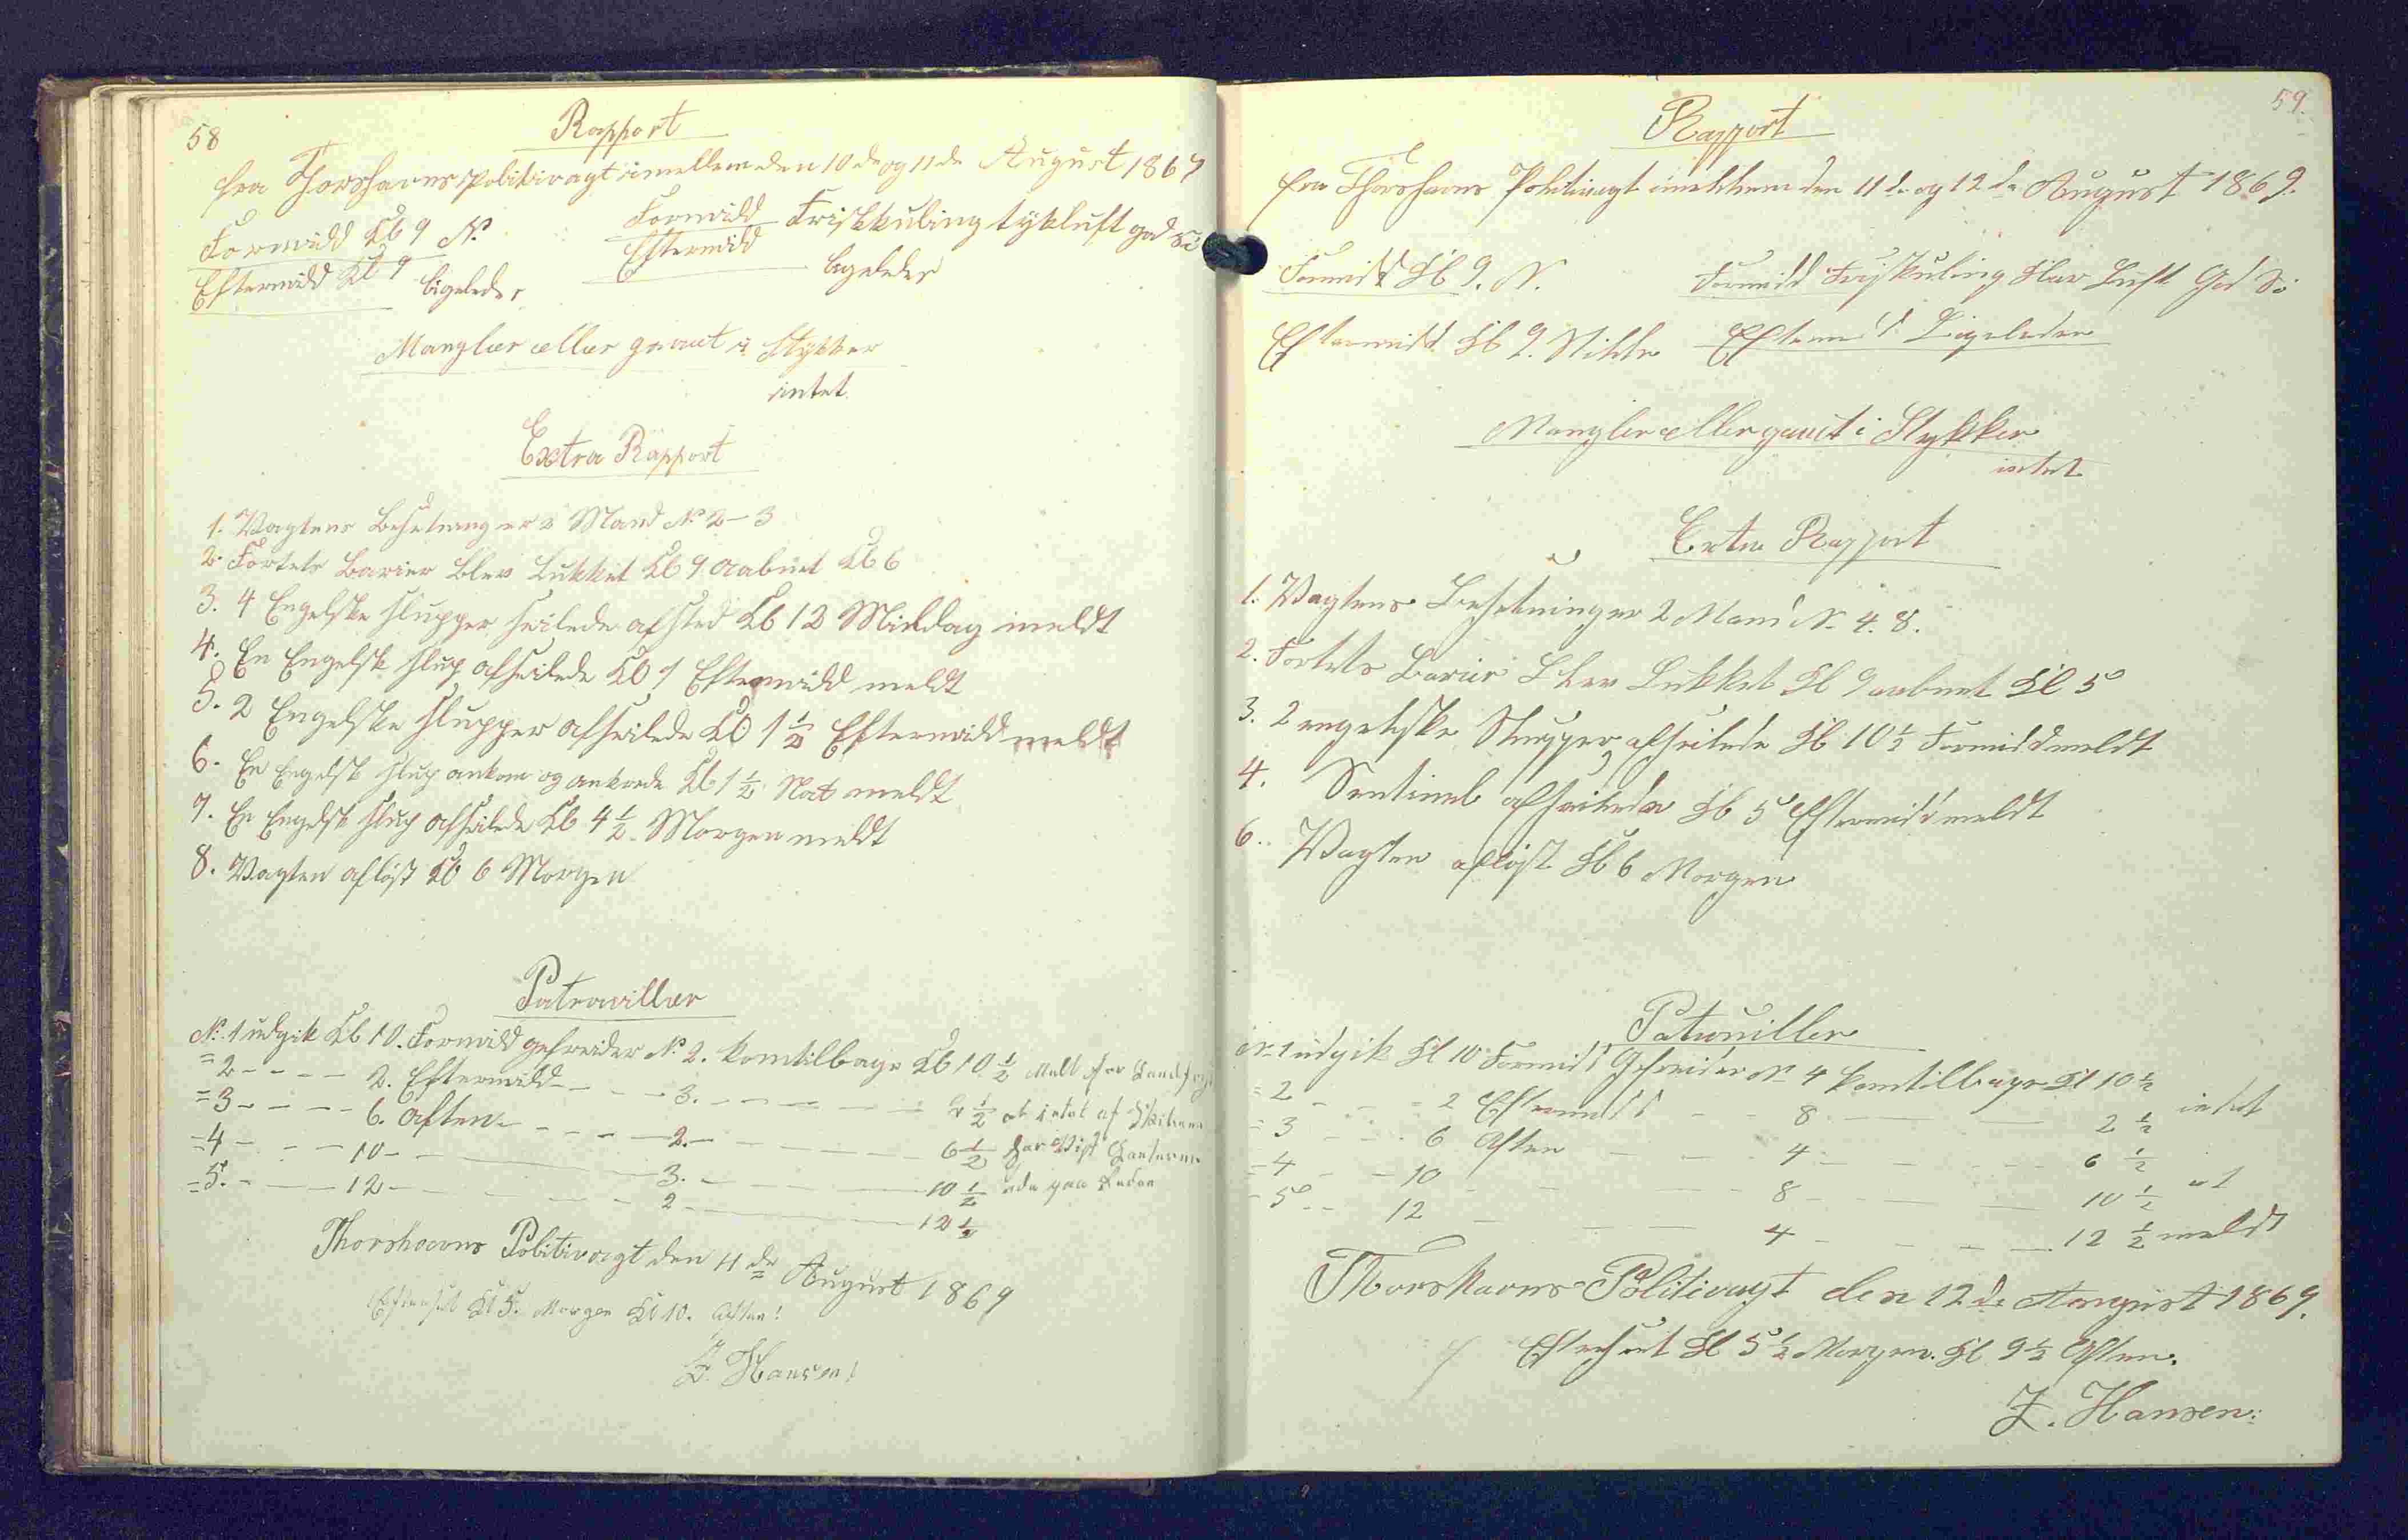 58
Rapport
fra Thorshavns Politivagt imellem den 10de og 11de August 1869
Formidd Kl 9 N.
Formidd Friskkuling tykluft god Sö
Eftermidd Kl 9 ligeledes
Eftermidd ligeledes
Mangler eller gaaet i Stykker
intet.
Extra Rapport
1. Vagtens Besetning er 2 Mand No 2-3
2. Fortets Barier blev Lukket Kl 9 aabnet Kl 6
3. 4 Engelske Slupper seilede afsted Kl 12 Middag meldt
4. En Engelsk Slup afseilede Kl 1 Eftermidd meldt
5. 2 Engelske Slupper afseilede Kl 1½ Eftermidd meldt
6. En Engelsk Slup ankom og ankrede Kl 1½ Nat meldt
7. En Engelsk Slup afseilede Kl 4½ Morgen meldt
8. Vagten aflöst Kl 6 Morgen
Patrouiller
No. 1 udgik Kl 10. Formidd gefreider No 2. kom tilbage Kl 10½ Meldt
=2 - - - - 2. Eftermidd - - - 3. - - - - 2½ at intet af
=3 - - - - 6. Aften - - - - 2. - - - - 6½
=4 - - - 10 - - - 3. - - - 10½ paa
=5. - - - 12 - - - 2 - - - 12½
Thorshavns Politivagt den 11de August 1869
Efterseet Kl 5. Morgen Kl 10. Aften!
Z. Hansen!
59.
Rapport
fra Thorshavns Politivagt imellem den 11de og 12de August 1869.
Formidd Kl 9. N.
Formidd Friskuling Klar Luft God Sö
Eftermidd Kl 9. Stille
Eftermd Ligeledes
Mangler eller gaaet i Stykker
intet
Extra Rapport
1. Vagtens Besetning er 2 Mand No 4. 8.
2. Fortets Barier Blev Lukket Kl 9 aabnet Kl 5
3. 2 engelske Slupper afseilede Kl 10½ Formidd meldt
4. Sentinel afseilede Kl 5 Eftermidd meldt
6. Vagten aflöst Kl 6 Morgen
Patrouiller
No 1 udgik Kl 10 Formidd Gefreider No 4 kom tilbage Kl 10½
=2 - - - 2 Eftermidd - - 8 - - - 2½ intet
=3 - - - 6 Aften - - - 4 - - - 6½
=4 - - 10 - - - 8 - - - 10½ at
=5 - - 12 - - - 4 - - - 12½ meldt
Thorshavns Politivagt den 12de August 1869.
Efterseet Kl 5½ Morgen. Kl 9½ Aften.
Z. Hansen: